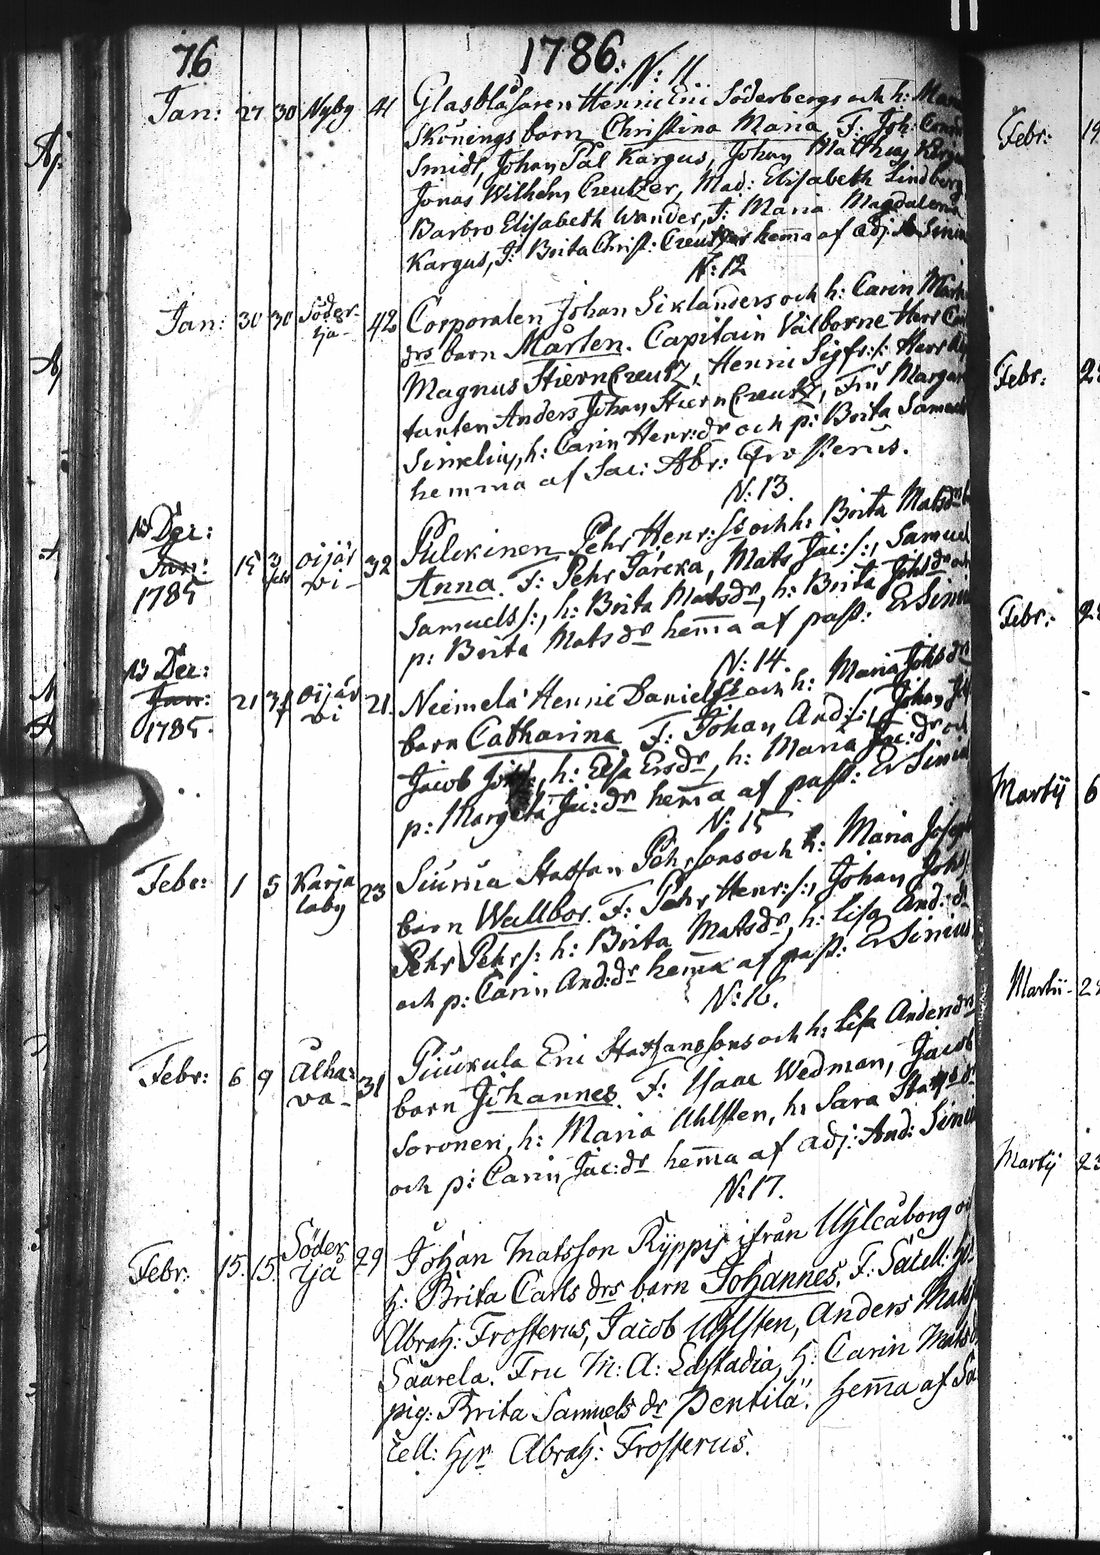 76
1786.
N: 11
Jan: 27 30 Nyby 41 Glasblåsaren Henric Eric Söderbergs och h: Maria
Skönings barn Christina Maria F: Joh: Conr
Smidt, Johan Pål Kargus, Johan Mathias
Jonas Wilhelm Creutzer, Mad: Elisabeth Lindberg
Barbro Elisabeth Wander, J: Maria Magdalena
Kargus, J: Brita Christ: Creutzer hemma af adj: Simeli
N: 12
Jan: 30 30 Söder- 42 Corporalen Johan Siklanders och h: Carin Mårt
jja- drs barn Mårten. Capitain Välborne Herr Carl
Magnus StiernCreutz, Henric Sigfr:s: Herr
tanten Anders Johan StiernCreutz, Fru Margar
Simelius, h: Carin Henr:dr och p: Brita Samuels
hemma af Sac: Abr: Frosterus.
N: 13.
13 Dec:
Jan: 15 3 Oijär 32 Pulckinen Pehr Henr:ss och h: Brita Matsdrs
1785 febr vi- Anna. F: Pehr Järcka, Mats Jac:s:, Samuel
Samuels:, h: Brita Matsdr, h: Brita Johsdr och
p: Brita Matsdr hemma af past: Er Simeli
N: 14.
13 Dec:
Jan: 21 3 f Oijär 21. Neimelä Henric Danielss och h: Maria Johsdrs
1785. vi barn Catharina F: Johan And:s:, Johan
Jacob h: Elsa Ersdr, h: Maria Jac:dr och
p: Margeta Jac:dr hemma af past: Er Simeli
N: 15
Febr: 1 5 Karja 23 Siurua Staffan Pehrsons och h: Maria Joseph
laby barn Wallbor. F: Pehr Henr:s:, Johan Joh
Pehr Pehrs: h: Brita Matsdr, h: Lisa And:dr
och p: Carin And:dr hemma af past: Er Simelius
N: 16.
Febr: 6 9 Alha- 31 Piuckula Eric Staffanssons och h: Lisa Andersdrs
va- barn Johannes. F: Isaac Wedman, Jacob
Soronen, h: Maria Uhlsten, h: Sara Staffsdr
och p: Carin Jac:dr hemma af adj: And: Simeli
N: 17.
Febr: 15. 15. Söder 29 Johan Matsson Ryppy ifrån Uhleåborg och
jja h: Brita Carlsdrs barn Johannes. F: Sacell: Hr
Abrah: Frosterus, Jacob Uhlsten, Anders Mats
Saarela. Fru M: A: Læstadia, h: Carin Mats
pig: Brita Samuels dr Pentilä. hemma af Sa
cell: Hr Abrah: Frosterus.
Febr: 19
Febr: 2
Febr: 2
Martij 6
Martij 2
Martij 23